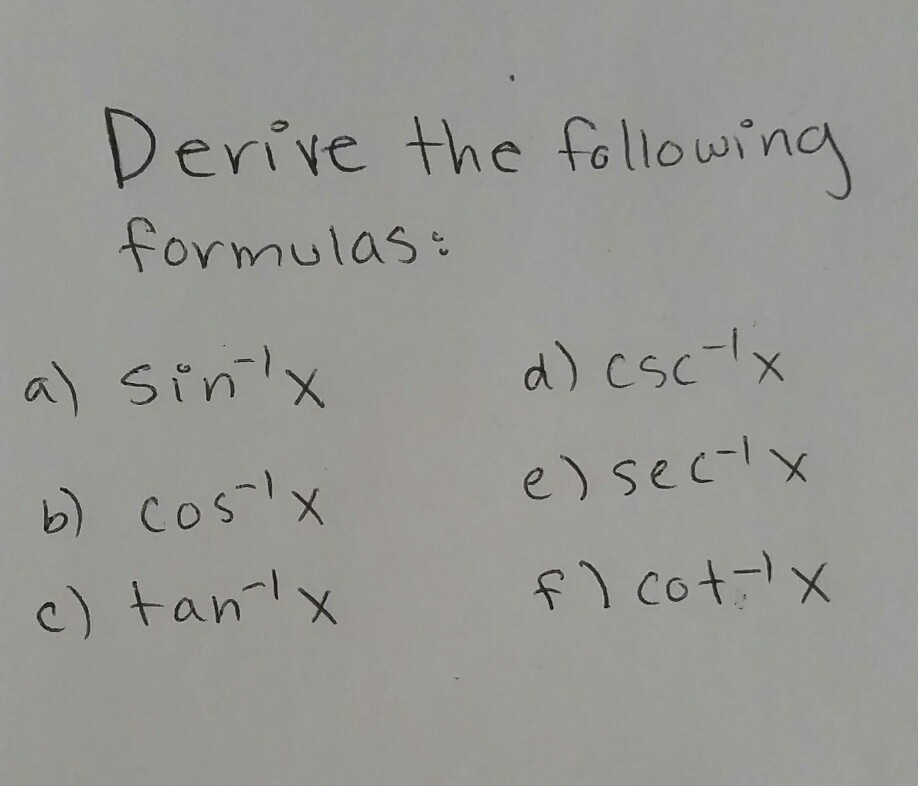 Derive the following
formulas:
a) sin⁻¹x
b) cos⁻¹x
c) tan⁻¹x
d) csc⁻¹x
e) sec⁻¹x
f) cot⁻¹x